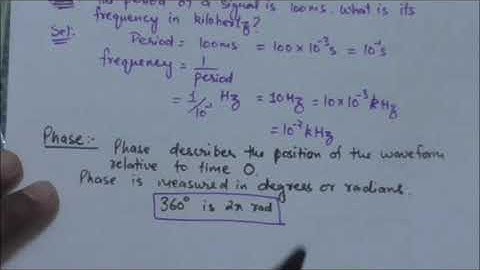 period of a signal is 100ms. What is its
frequency in kilohertz?
Sol:
Period = 100ms = 100×10⁻³s = 10⁻¹s
frequency = 1/period
= 1/10⁻¹ Hz = 10Hz = 10×10⁻³ kHz
= 10⁻² kHz
Phase:- Phase describes the position of the waveform
relative to time 0.
Phase is measured in degrees or radians.
360° is 2π rad